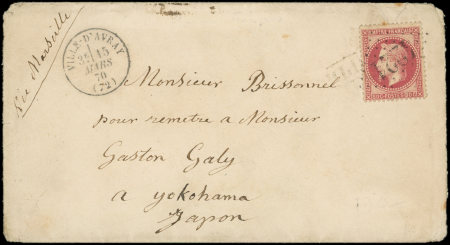 Via Marseille
VILLE-D'AVRAY
15
MARS
70
(72)
EMPIRE FRANÇAIS
Monsieur Brissonnel
pour remetre a Monsieur
Gaston Galy
a yokohama
Japon